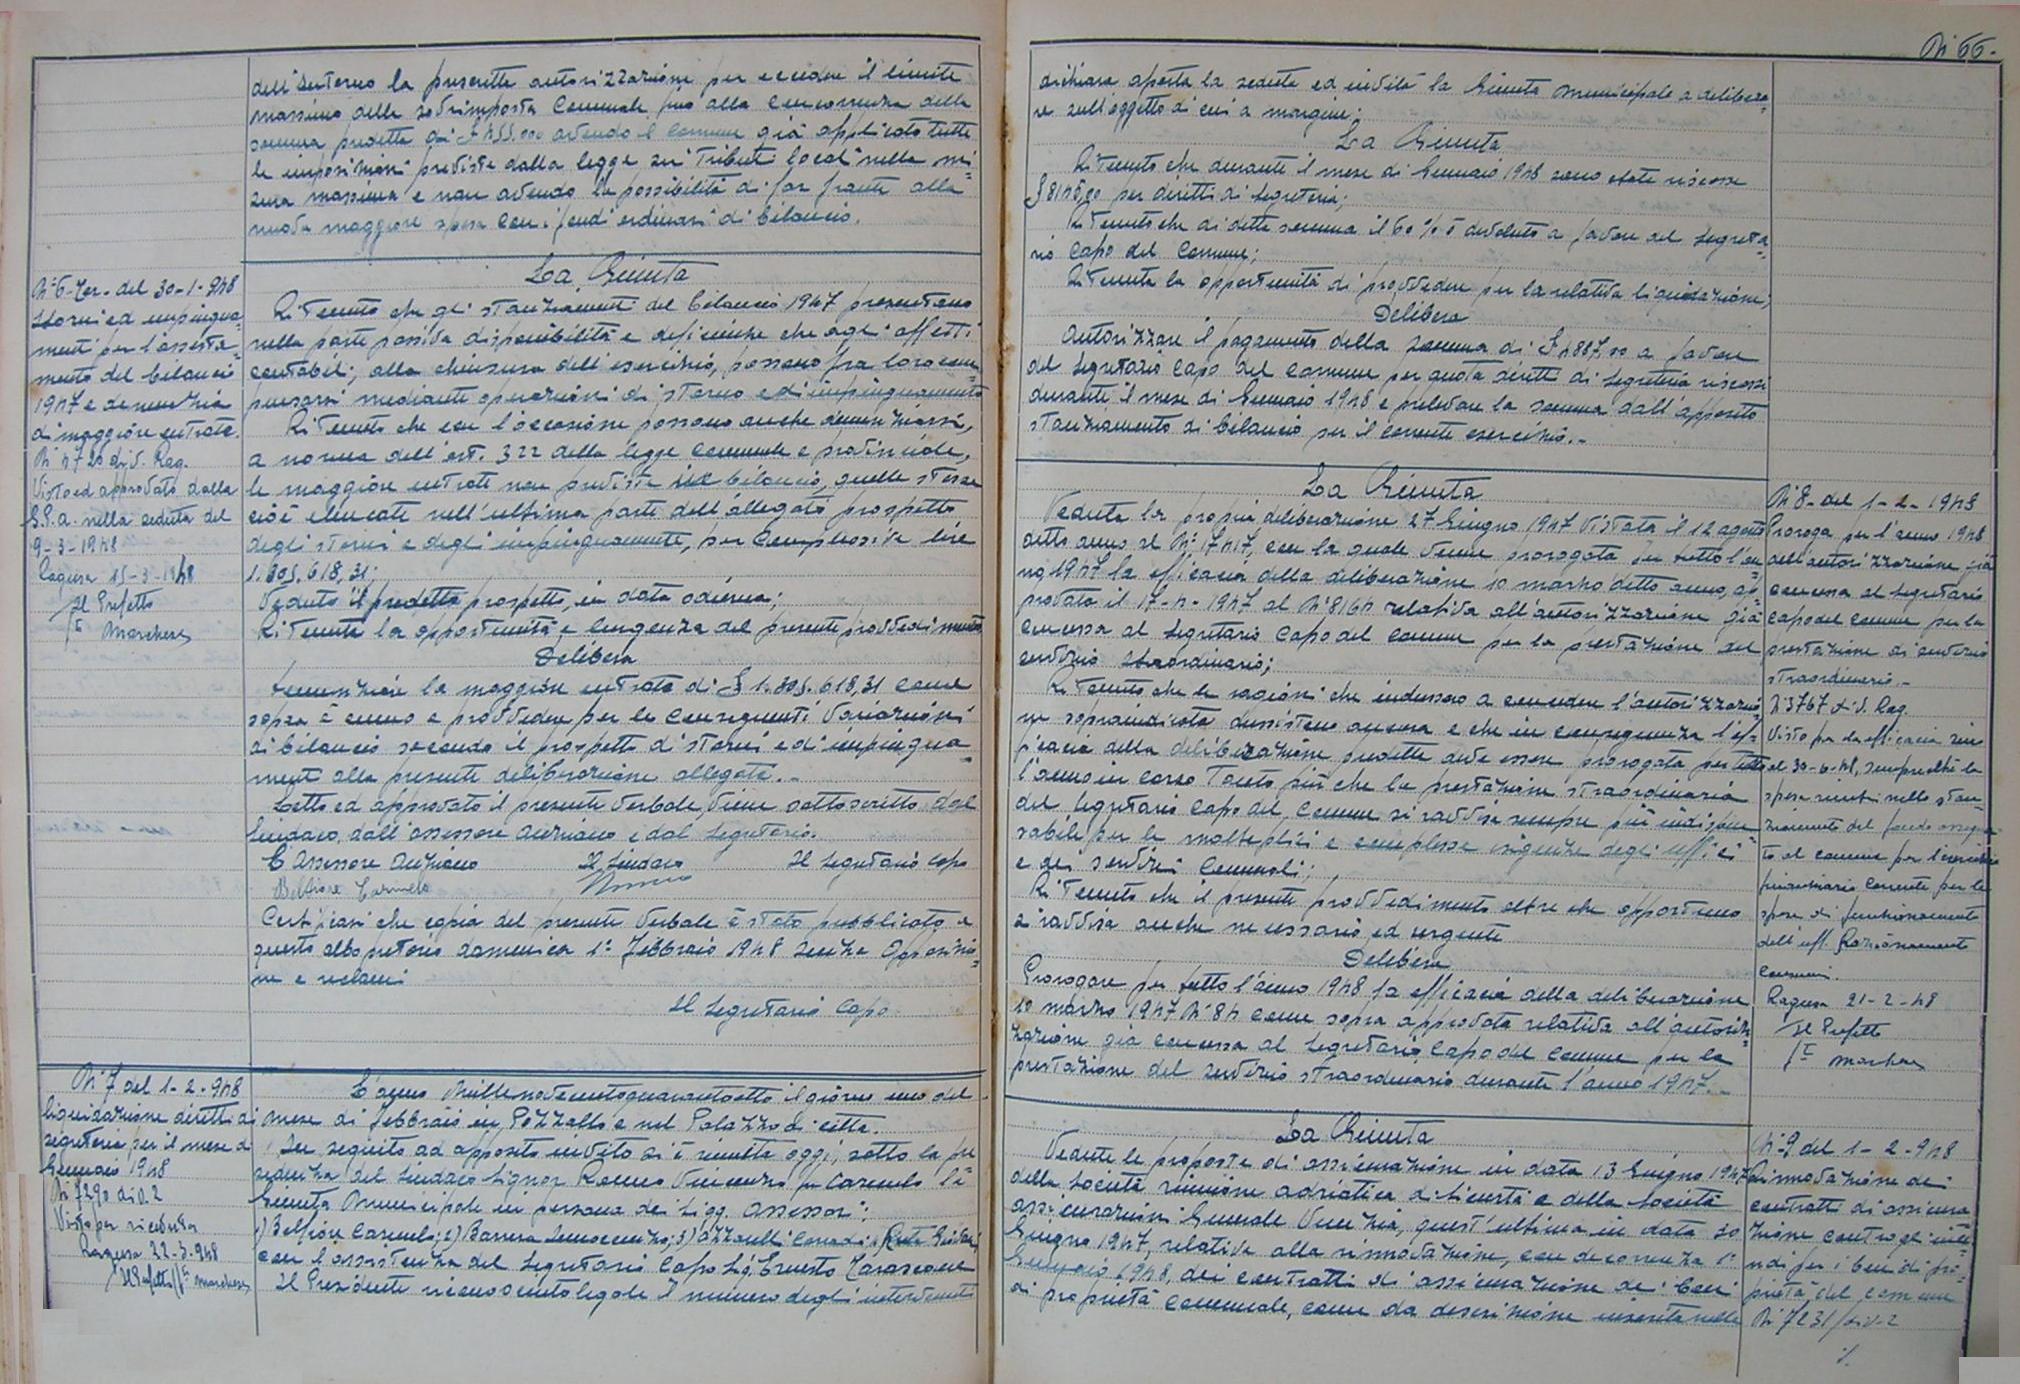 dell'Interno la prescritta autorizzazione per eccedere il limite
massimo della sovrimposta Comunale fino alla concorrenza della
somma predetta di £ 455.000 avendo il Comune già applicato tutte
le imposizioni previste dalla legge sui Tributi locali nella mi=
sura massima e non avendo la possibilità di far fronte alla
nuova maggiore spesa con i fondi ordinari di bilancio.
N° 6-Ter- del 30-1-948
Storni ed impingua=
menti per l'assesta=
mento del bilancio
1947 e denunzia
di maggiore entrata.
N° 4720 div. Rag.
Visto ed approvato dalla
G.P.A. nella seduta del
9-3-1948
Ragusa 15-3-1948
Il Prefetto
Marchese
La Giunta
Ritenuto che gli stanziamenti del bilancio 1947 presentano
nella parte passiva disponibilità e deficienze che agli effetti
contabili, alla chiusura dell'esercizio, possono fra loro com=
pensarsi mediante operazioni di storno ed impinguamento
Ritenuto che con l'occasione possono anche denunziarsi,
a norma dell'art. 322 della legge Comunale e provinciale,
le maggiori entrate non previste in bilancio, quelle stesse
cioè elencate nell'ultima parte dell'allegato prospetto
degli storni e degli impinguamenti, per complessive lire
1.305.618,31;
Veduto il predetto prospetto, in data odierna;
Ritenuta la opportunità e l'urgenza del presente provvedimento
Delibera
denunziare la maggiore entrata di £ 1.305.618,31 come
sopra è cenno e provvedere per le conseguenti variazioni
di bilancio secondo il prospetto di storni ed impingua=
menti alla presente deliberazione allegato.-
Letto ed approvato il presente verbale viene sottoscritto dal
Sindaco, dall'assessore anziano e dal segretario.
L'Assessore anziano Il Sindaco Il Segretario Capo
Belfiore Carmelo
Certificasi che copia del presente verbale è stato pubblicato a
questo albo pretorio domenica 1° Febbraio 1948 senza opposizio=
ne e reclami
Il Segretario Capo
N° 7 del 1-2-948
liquidazione diritti di
segreteria per il mese di
Gennaio 1948
N° 7290 div. 2
Visto per ricevuta
Ragusa 22-3-948
Il Prefetto f° Marchese
L'anno Millenovecentoquarantotto il giorno uno del
mese di febbraio in Pozzallo e nel Palazzo di città.
In seguito ad apposito invito si è riunita oggi, sotto la pre
sidenza del Sindaco Signor Rocco Vincenzo fu Carmelo la
Giunta Municipale in persona dei Sigg. Assessori:
1) Belfiore Carmelo; 2) Barrera Innocenzo; 3) Azzarelli Corrado;
con l'assistenza del Segretario Capo Sig. Ernesto Tarascone
Il Presidente riconosciuto legale il numero degli intervenuti
N° 66-
dichiara aperta la seduta ed invita la Giunta Municipale a delibera=
re sull'oggetto di cui a margine:
La Giunta
Ritenuto che durante il mese di Gennaio 1948 sono state riscosse
£ 8145,00 per diritti di segreteria;
Ritenuto che di detta somma il 60% è devoluto a favore del Segreta=
rio Capo del Comune;
Ritenuta la opportunità di provvedere per la relativa liquidazione;
Delibera
Autorizzare il pagamento della somma di £ 4887,00 a favore
del Segretario Capo del Comune per quota diritti di segreteria riscossi
durante il mese di Gennaio 1948 e prelevare la somma dall'apposito
stanziamento di bilancio per il corrente esercizio.-
La Giunta
Veduta la propria deliberazione 27 Giugno 1947 vistata il 12 agosto
detto anno al N° 17417, con la quale venne prorogata per tutto l'an=
no 1947 la efficacia della deliberazione 10 marzo detto anno, ap=
provata il 17-4-1947 al N° 8164 relativa all'autorizzazione già
concessa al Segretario Capo del Comune per la prestazione del
servizio straordinario;
Ritenuto che le ragioni che indussero a concedere l'autorizzazio=
ne sopraindicata sussistono ancora e che in conseguenza l'ef=
ficacia della deliberazione predetta deve essere prorogata per tutto
l'anno in corso tanto più che la prestazione straordinaria
del Segretario Capo del Comune si ravvisa sempre più indispen=
sabile per le molteplici e complesse esigenze degli uffici
e dei servizi Comunali;
Ritenuto che il presente provvedimento oltre che opportuno
si ravvisa anche necessario ed urgente
Delibera
Prorogare per tutto l'anno 1948 la efficacia della deliberazione
10 marzo 1947 N° 84 come sopra approvata relativa all'autoriz=
zazione già concessa al Segretario Capo del Comune per la
prestazione del servizio straordinario durante l'anno 1947.-
N° 8- del 1-2-1948
Proroga per l'anno 1948
dell'autorizzazione già
concessa al Segretario
Capo del Comune per la
prestazione di servizio
straordinario.-
N° 3767 div. Rag.
Visto per la efficacia sino
al 30-6-48, sempreché la
spesa rientri nello stan=
ziamento del fondo assegna=
to al Comune per l'esercizio
finanziario corrente per le
spese di funzionamento
dell'uff. Razionamento
Consumi.
Ragusa 21-2-48
Il Prefetto
f° Marchese
La Giunta
Vedute le proposte di assicurazione in data 13 Giugno 1947
della Società riunione adriatica di Sicurtà e della Società
assicurazioni Generali Venezia, quest'ultima in data 30
Giugno 1947, relative alla rinnovazione, con decorrenza 1°
Gennaio 1948, dei contratti di assicurazione dei beni
di proprietà comunale, come da descrizione inserita nelle
N° 9 del 1-2-948
Rinnovazione dei
contratti di assicura
zione contro gli ince=
ndi per i beni di pro=
prietà del comune
N° 7231/div. 2
./.